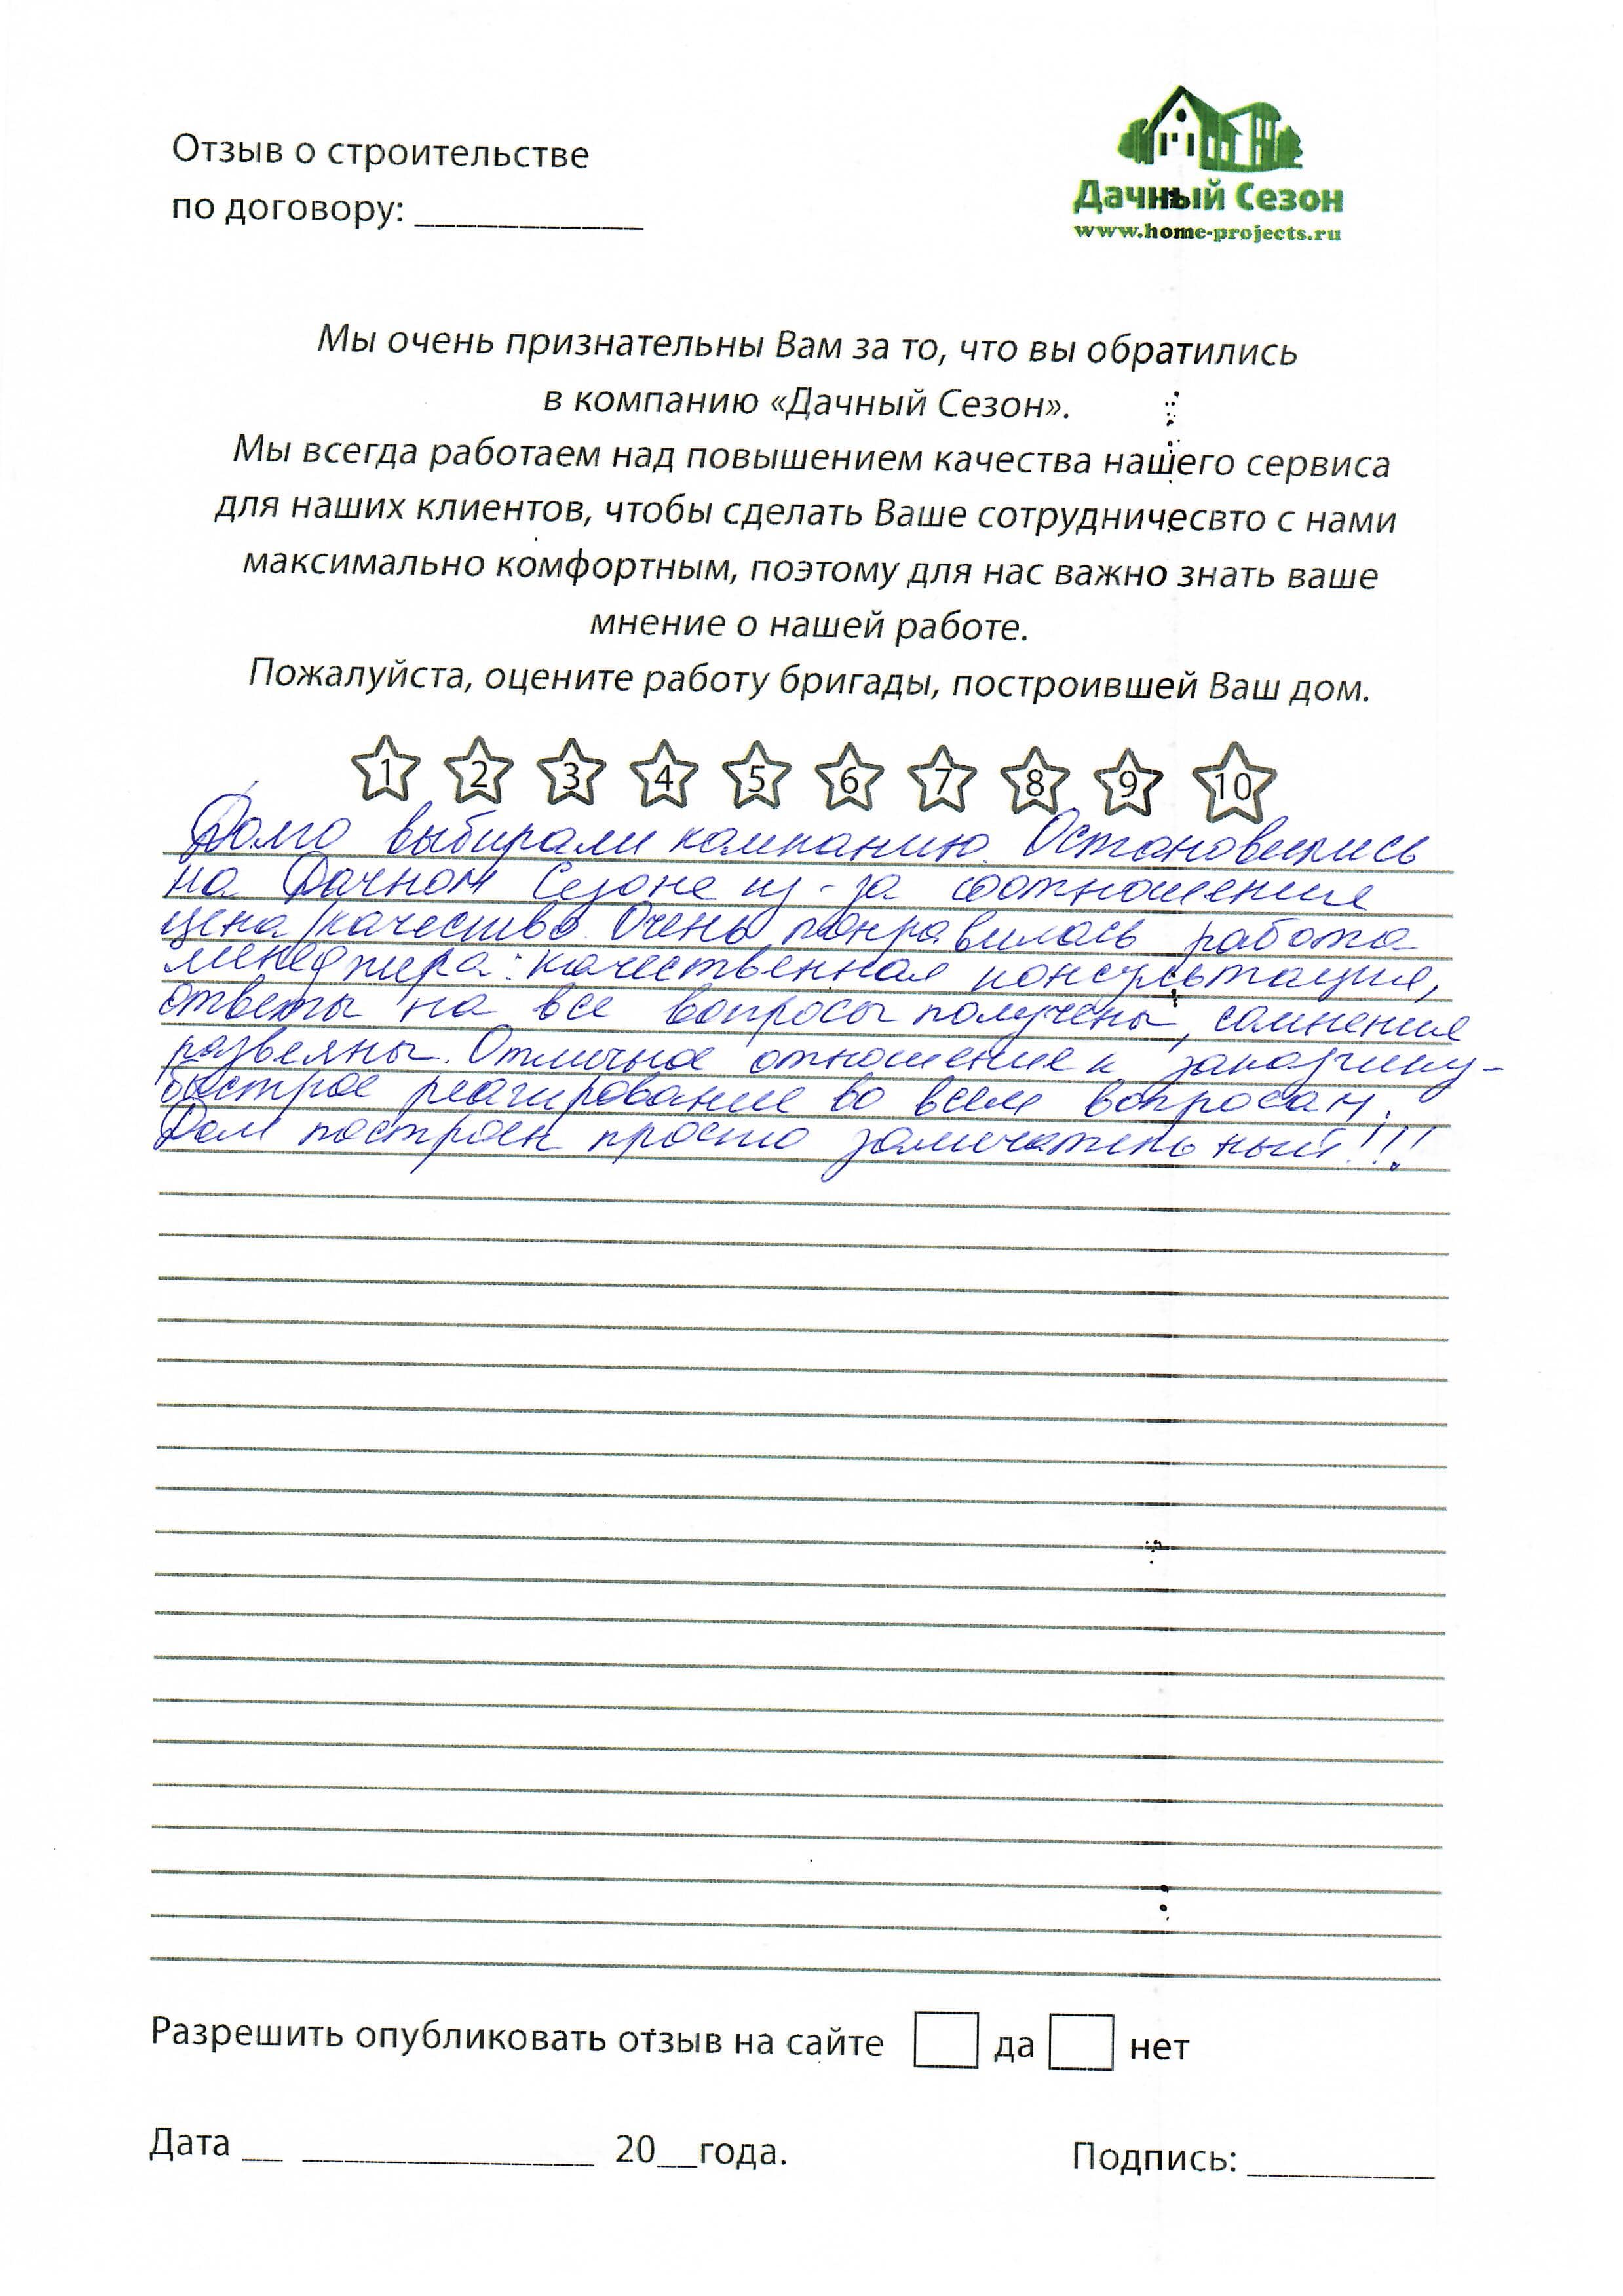 Отзыв о строительстве
по договору: ___________
Дачный Сезон
www.home-projects.ru
Мы очень признательны Вам за то, что вы обратились
в компанию «Дачный Сезон».
Мы всегда работаем над повышением качества нашего сервиса
для наших клиентов, чтобы сделать Ваше сотрудничесвто с нами
максимально комфортным, поэтому для нас важно знать ваше
мнение о нашей работе.
Пожалуйста, оцените работу бригады, построившей Ваш дом.
1 2 3 4 5 6 7 8 9 10
Долго выбирали компанию. Остановились
на Дачном Сезоне из-за соотношения
цена/качество. Очень понравилась работа
менеджера: качественная консультация,
ответы на все вопросы получены, сомнения
развеяны. Отличное отношение к заказчику-
быстрое реагирование по всем вопросам.
Дом построен просто замечательный!!!
Разрешить опубликовать отзыв на сайте да нет
Дата __ ______________ 20__года. Подпись: _________